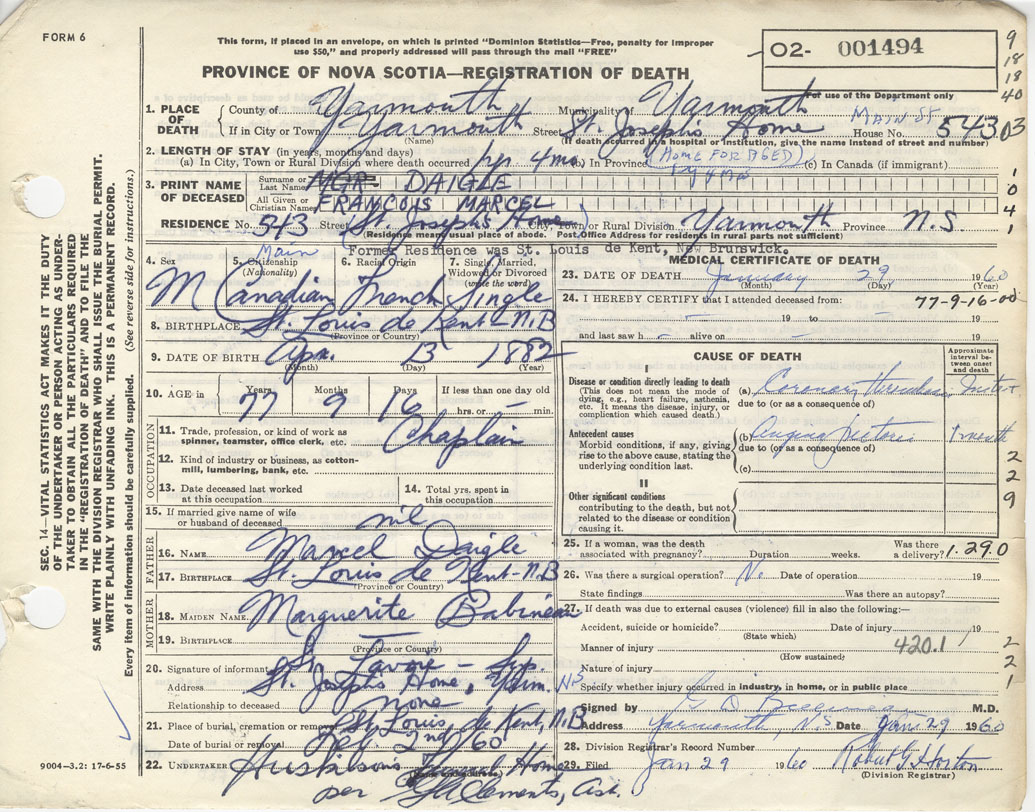 FORM 6
This form, if placed in an envelope, on which is printed "Dominion Statistics—Free, penalty for improper
use $50," and properly addressed will pass through the mail "FREE"
PROVINCE OF NOVA SCOTIA—REGISTRATION OF DEATH
02- 001494
For use of the Department only
9
18
18
40
03
1. PLACE OF DEATH
County of Yarmouth Municipality Yarmouth
If in City or Town Yarmouth Street St. Joseph's Home Main St House No. 543
(Name) (If death occurred in a hospital or institution, give the name instead of street and number)
2. LENGTH OF STAY (in years, months and days)
(a) In City, Town or Rural Division where death occurred 4 mo (b) In Province (HOME FOR AGED) (c) In Canada (if immigrant)
3. PRINT NAME OF DECEASED
Surname or Last Name MGR DAIGLE
All Given or Christian Names FRANCOIS MARCEL
1
0
4
1
RESIDENCE No. 543 Street St. Joseph's Home City, Town or Rural Division Yarmouth Province N.S
Main
(Residence means usual place of abode. Post Office Address for residents in rural parts not sufficient)
Former Residence was St. Louis de Kent, New Brunswick.
4. Sex 5. Citizenship (Nationality) 6. Racial Origin 7. Single, Married, Widowed or Divorced (write the word)
M Canadian French Single
8. BIRTHPLACE St. Louis de Kent - N.B
(Province or Country)
9. DATE OF BIRTH Apr. 13 1882
(Month) (Day) (Year)
10. AGE in Years Months Days If less than one day old
77 9 16 hrs. or - min.
OCCUPATION
11. Trade, profession, or kind of work as spinner, teamster, office clerk, etc. Chaplain
12. Kind of industry or business, as cotton-mill, lumbering, bank, etc.
13. Date deceased last worked at this occupation
14. Total yrs. spent in this occupation
15. If married give name of wife or husband of deceased nil
FATHER
16. NAME Marcel Daigle
17. BIRTHPLACE St. Louis de Kent-N.B
(Province or Country)
MOTHER
18. MAIDEN NAME Marguerite Babineau
19. BIRTHPLACE —
(Province or Country)
20. Signature of informant Sr. Lavoie - Sup.
Address St. Joseph's Home, Yarm. NS
Relationship to deceased none
21. Place of burial, cremation or removal St. Louis de Kent, N.B
Date of burial or removal Feb. 2nd/60
22. UNDERTAKER Huskilson's Funeral Home
(Name and address)
per Clements, Asst.
MEDICAL CERTIFICATE OF DEATH
23. DATE OF DEATH January 29 1960
(Month) (Day) (Year)
24. I HEREBY CERTIFY that I attended deceased from: 77-9-16-00
- 19 to - 19
and last saw h - alive on - 19
CAUSE OF DEATH
Approximate interval between onset and death
I
Disease or condition directly leading to death
(This does not mean the mode of dying, e.g., heart failure, asthenia, etc. It means the disease, injury, or complication which caused death.)
(a) Coronary thrombosis
due to (or as a consequence of)
Antecedent causes
Morbid conditions, if any, giving rise to the above cause, stating the underlying condition last.
(b) Angina Pectoris 1 month
due to (or as a consequence of)
(c)
II
Other significant conditions
contributing to the death, but not related to the disease or condition causing it.
2
2
9
25. If a woman, was the death associated with pregnancy? Duration weeks. Was there a delivery? 1.290
26. Was there a surgical operation? No Date of operation 19
State findings Was there an autopsy?
27. If death was due to external causes (violence) fill in also the following:—
Accident, suicide or homicide? Date of injury 19
(State which)
Manner of injury 420.1
(How sustained)
Nature of injury
2
2
1
Specify whether injury occurred in industry, in home, or in public place
Signed by M.D.
Address Yarmouth, N.S Date Jan 29 1960
28. Division Registrar's Record Number
29. Filed Jan 29 1960 Robert G Horton
(Division Registrar)
9004—3.2: 17-6-55
SEC. 14—VITAL STATISTICS ACT MAKES IT THE DUTY
OF THE UNDERTAKER OR PERSON ACTING AS UNDER-
TAKER TO OBTAIN ALL THE PARTICULARS REQUIRED
IN THE "REGISTRATION OF DEATH" AND TO FILE THE
SAME WITH THE DIVISION REGISTRAR WHO SHALL ISSUE THE BURIAL PERMIT.
WRITE PLAINLY WITH UNFADING INK. THIS IS A PERMANENT RECORD.
Every item of information should be carefully supplied. (See reverse side for instructions.)